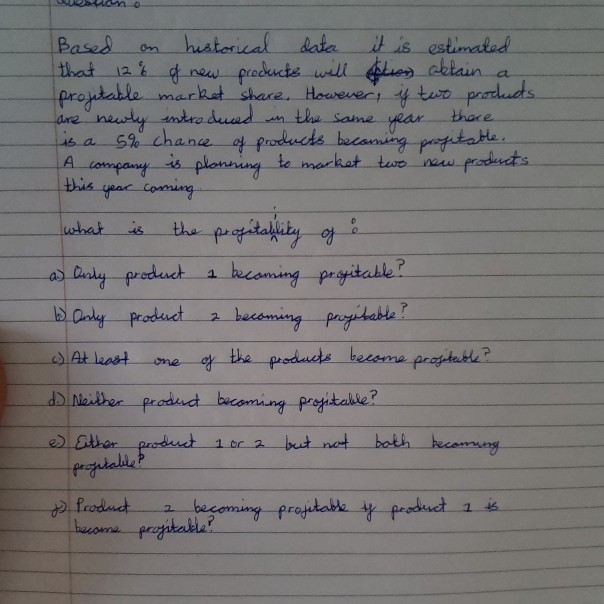 Question :
Based on historical data it is estimated
that 12 % of new products will obtain a
profitable market share. However, if two products
are newly introduced in the same year there
is a 5% chance of products becoming profitable.
A company is planning to market two new products
this year coming.
what is the profitability of :
a) Only product 1 becoming profitable?
b) Only product 2 becoming profitable?
c) At least one of the products become profitable?
d.) Neither product becoming profitable?
e) Either product 1 or 2 but not both becoming
profitable?
f) Product 2 becoming profitable if product 1 is
become profitable?